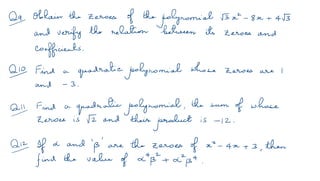 Q9. Obtain the zeroes of the polynomial √3 x² - 8x + 4√3
and verify the relation between its zeroes and
coefficients.
Q10 Find a quadratic polynomial whose zeroes are 1
and - 3.
Q.11. Find a quadratic polynomial, the sum of whose
zeroes is √2 and their product is -12.
Q.12 If α and 'β' are the zeroes of x² - 4x + 3, then
find the value of α⁴β² + α²β⁴.